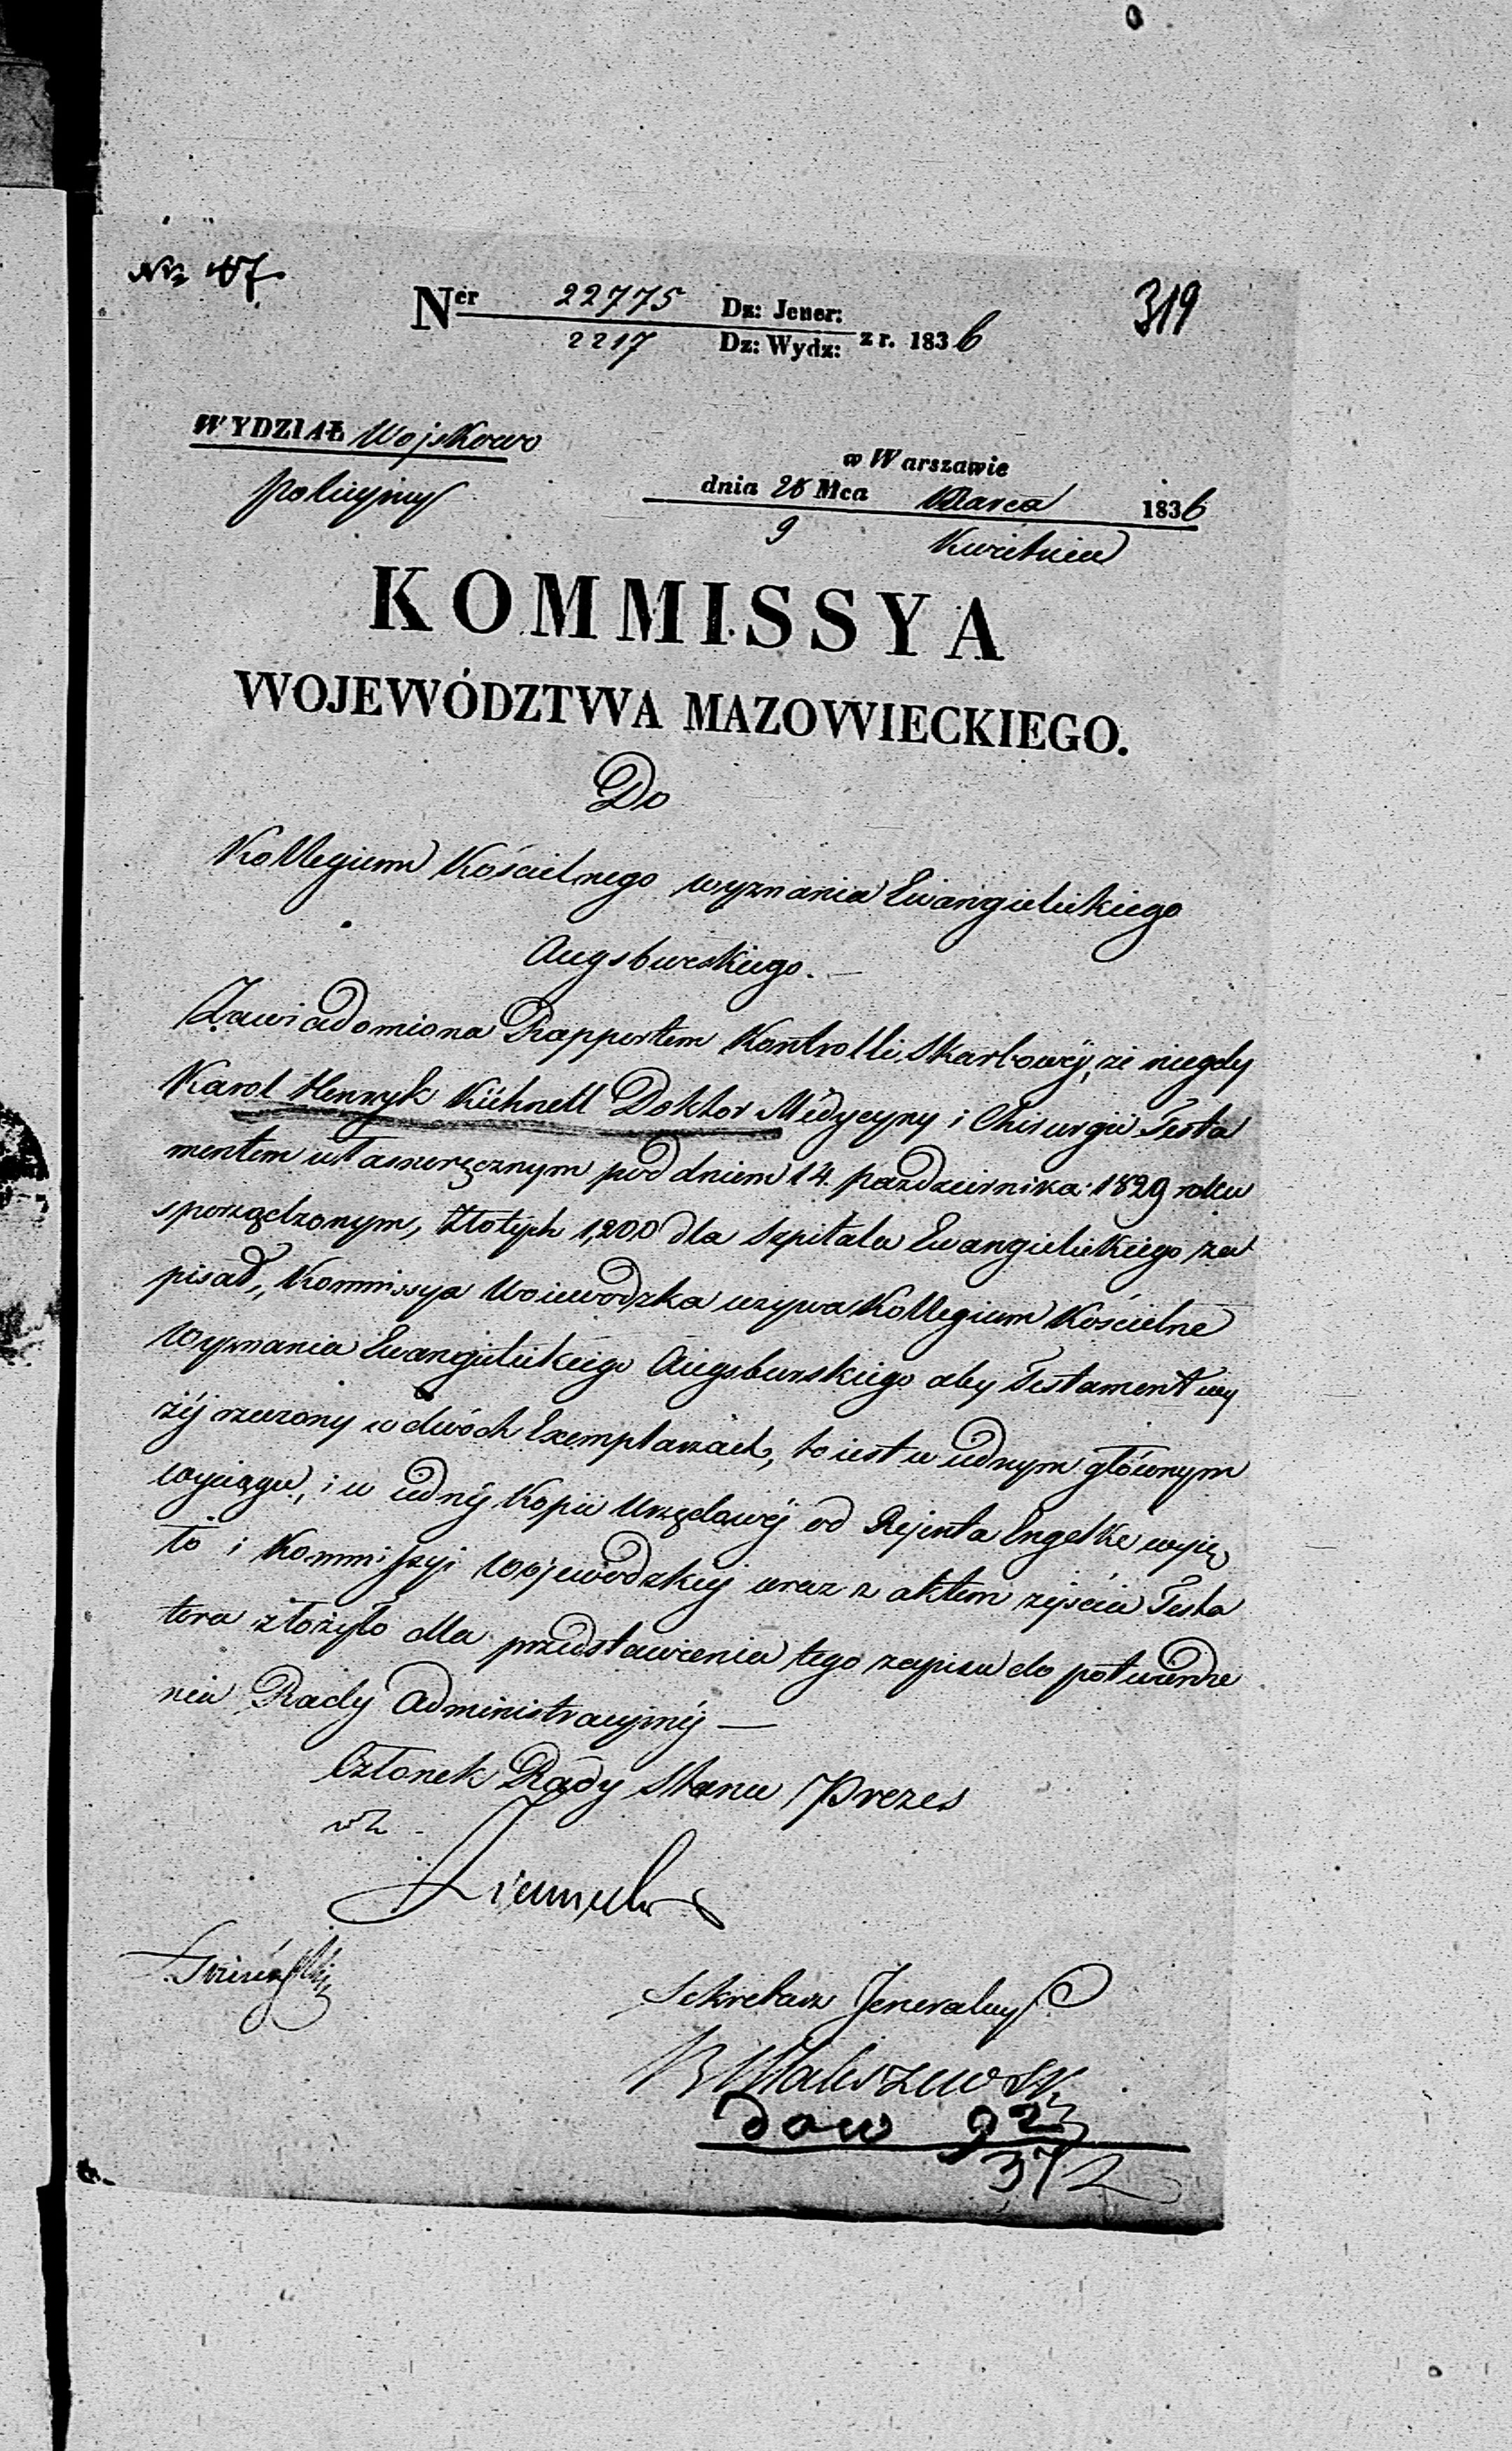 319
Ner 22775 Dz: Jener:
2217 Dz: Wydz: z r. 1836
WYDZIAŁ Wojskowo
policyjny
w Warszawie
dnia 28 Mca Marca 1836
9 Kwietnia
KOMMISSYA
WOJEWÓDZTWA MAZOWIECKIEGO.
Do
Kollegium Kościelnego wyznania Ewangielickiego
Augsburskiego. —
Zawiadomiona Rapportem Kontrolli Skarbowéj, że niegdy
Karol Henryk Kühnell Doktor Medycyny i Chirurgii Testa
mentem własnoręcznym pod dniem 14. października 1829 roku
sporządzonym, Złotych 1,200 dla Szpitala Ewangielickiego za
pisał, Kommissya Woiewodzka wzywa Kollegium Kościelne
Wyznania Ewangielickiego Augsburskiego aby Testament wy
żéj rzeczony w dwóch Exemplarzach, to iest w iednym głównym
wyciągu, i w iednéj Kopii Urzędowéj od Rejenta Engelke wyię
to i Kommissyi Wojewodzkiej wraz z aktem zejścia Testa
tora złożyło dla przedstawienia tego zapisu do potwierdze
nia Rady Administracyjnéj —
Członek Rady Stanu Prezes
wz
Sekretarz Jeneralny
Maliszewski
372